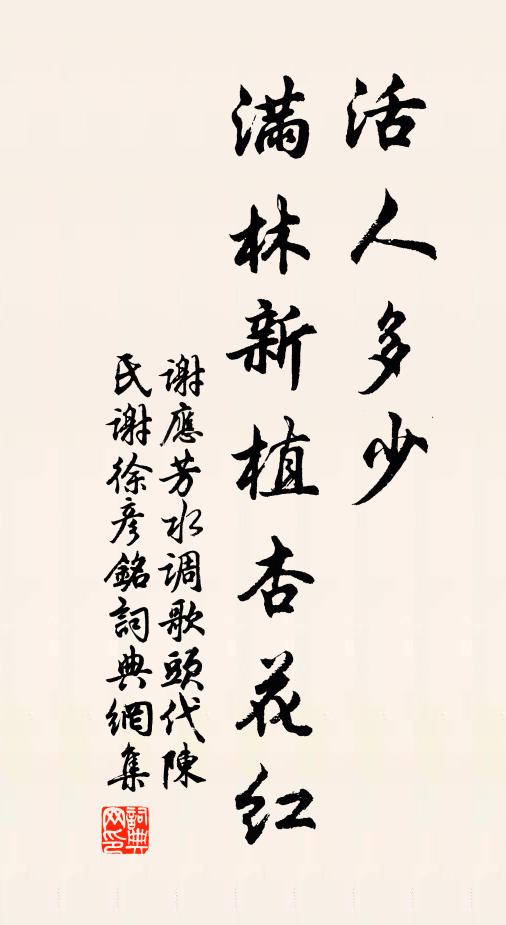 活人多少
滿林新植杏花红
谢應芳水调歌頭代陳
民谢徐彦銘詞典網集
詞典
网印